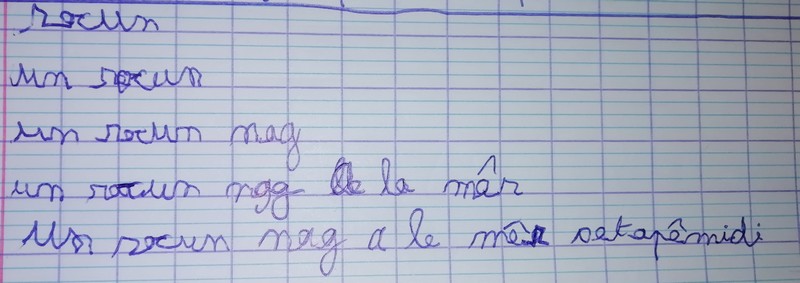 rocun
un rocun
un rocun nag
un rocun nag la mêr
Un rocun nag a le mêr setapêmidi